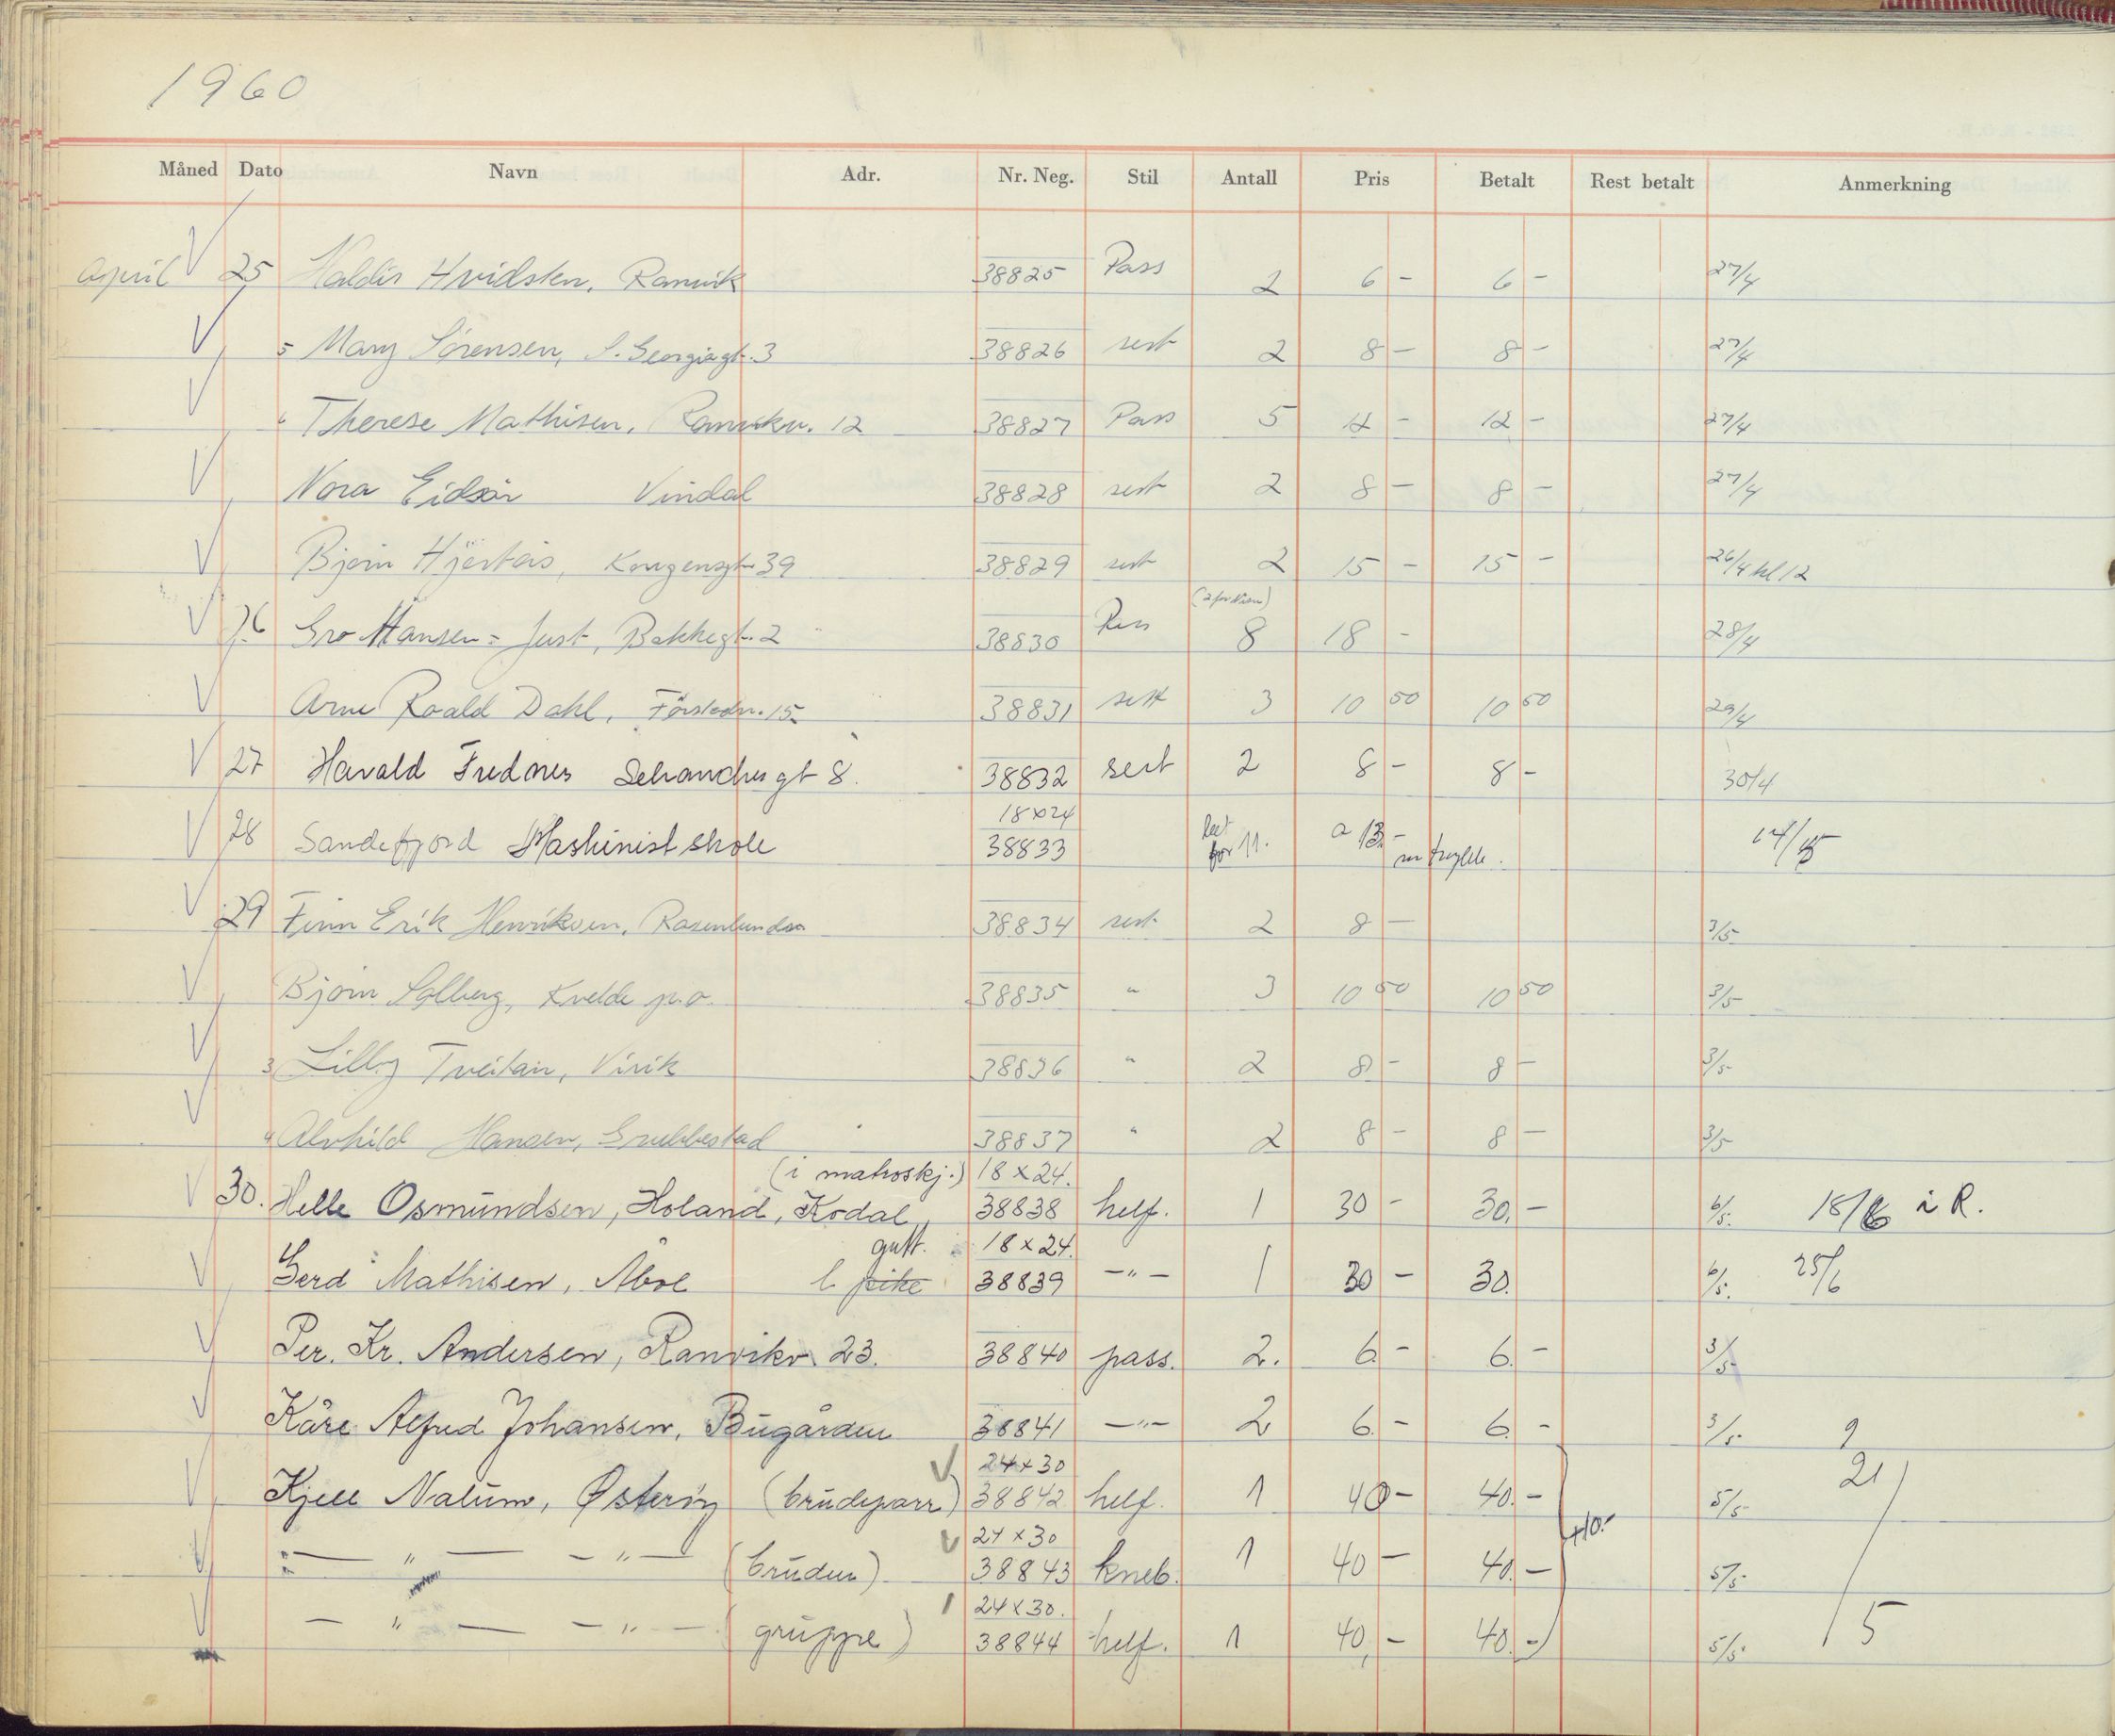 1960
Måned Dato Navn Adr. Nr. Neg. Stil Antall Pris Betalt Rest betalt Anmerkning
April 25 Haldis Hvidsten, Ranvik 38825 Pass 2 6 - 6 - 27/4
Mary Sørensen, S. Georgiagt. 3 38826 sert 2 8 - 8 - 27/4
" Therese Mathisen, Ranvikv. 12 38827 Pass 5 12 - 12 - 27/4
Nora Eidsår Vindal 38828 sert 2 8 - 8 - 27/4
Bjørn Hjertås, Kongensgt. 39 38829 sert 2 15 - 15 - 26/4 kl 12
26 Gro Hansen - Just, Bakkegt. 2 38830 Pass 8 18 - 28/4
Arne Roald Dahl, 15 38831 sert 3 10 50 10 50 29/4
27 Harald Frednes gt 8. 38832 sert 2 8 - 8 - 30/4
18x24
28 Sandefjord Maskinistskole 38833 for 11. a 13.-
29 Finn Erik Henriksen, 38834 sert 2 8 - 3/5
Bjørn Solberg, Kvelde p.o. 38835 " 3 10 50 10 50 3/5
Lilly Tveitan, Virik 38836 " 2 8 - 8 - 3/5
" Alvhild Hansen, Grubbestad 38837 " 2 8 - 8 - 3/5
(i matroskj.) 18x24.
30. Helle Osmundsen, Holand, Kodal 38838 helf. 1 30 - 30. - 6/5. 18/6 i R.
gutt. 18x24.
Gerd Mathisen, Åbol l pike 38839 -"- 1 30 - 30. 6/5. 25/6
Per. Kr. Andersen, Ranvikv. 23. 38840 pass. 2. 6 - 6. - 3/5
Kåre Alfred Johansen, Bugården 38841 -"- 2 6. - 6. - 3/5.
24x30 21/5
Kjell Nalum, Østerøy (brudeparr) 38842 helf. 1 40 - 40. - 5/5-
24x30 +10.-
- " - - " - (bruden) 38843 kneb. 1 40 - 40. - 5/5-
24x30.
- " - - " - (gruppe) 38844 helf. 1 40, - 40. - 5/5.